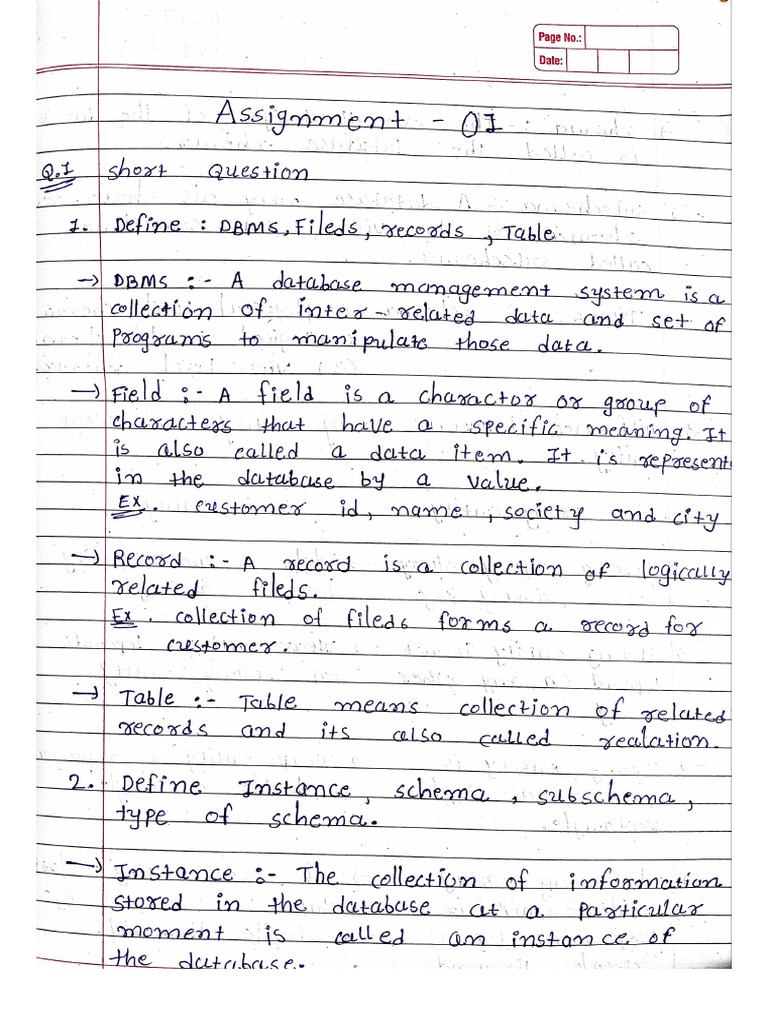 Page No.:
Date:
Assignment - 01
Q.1 short Question
1. Define : DBMS, Fileds, records, Table
→ DBMS :- A database management system is a
collection of inter-related data and set of
Programs to manipulate those data.
→ Field :- A field is a charactor or group of
characters that have a specific meaning. It
is also called a data item. It is represent
in the database by a value.
Ex. customer id, name, society and city
→ Record :- A record is a collection of logically
related fileds.
Ex. collection of fileds forms a record for
customer.
→ Table :- Table means collection of related
records and its also called realation.
2. Define Instance, schema, subschema,
type of schema.
→ Instance :- The collection of information
stored in the database at a particular
moment is called an instance of
the database.